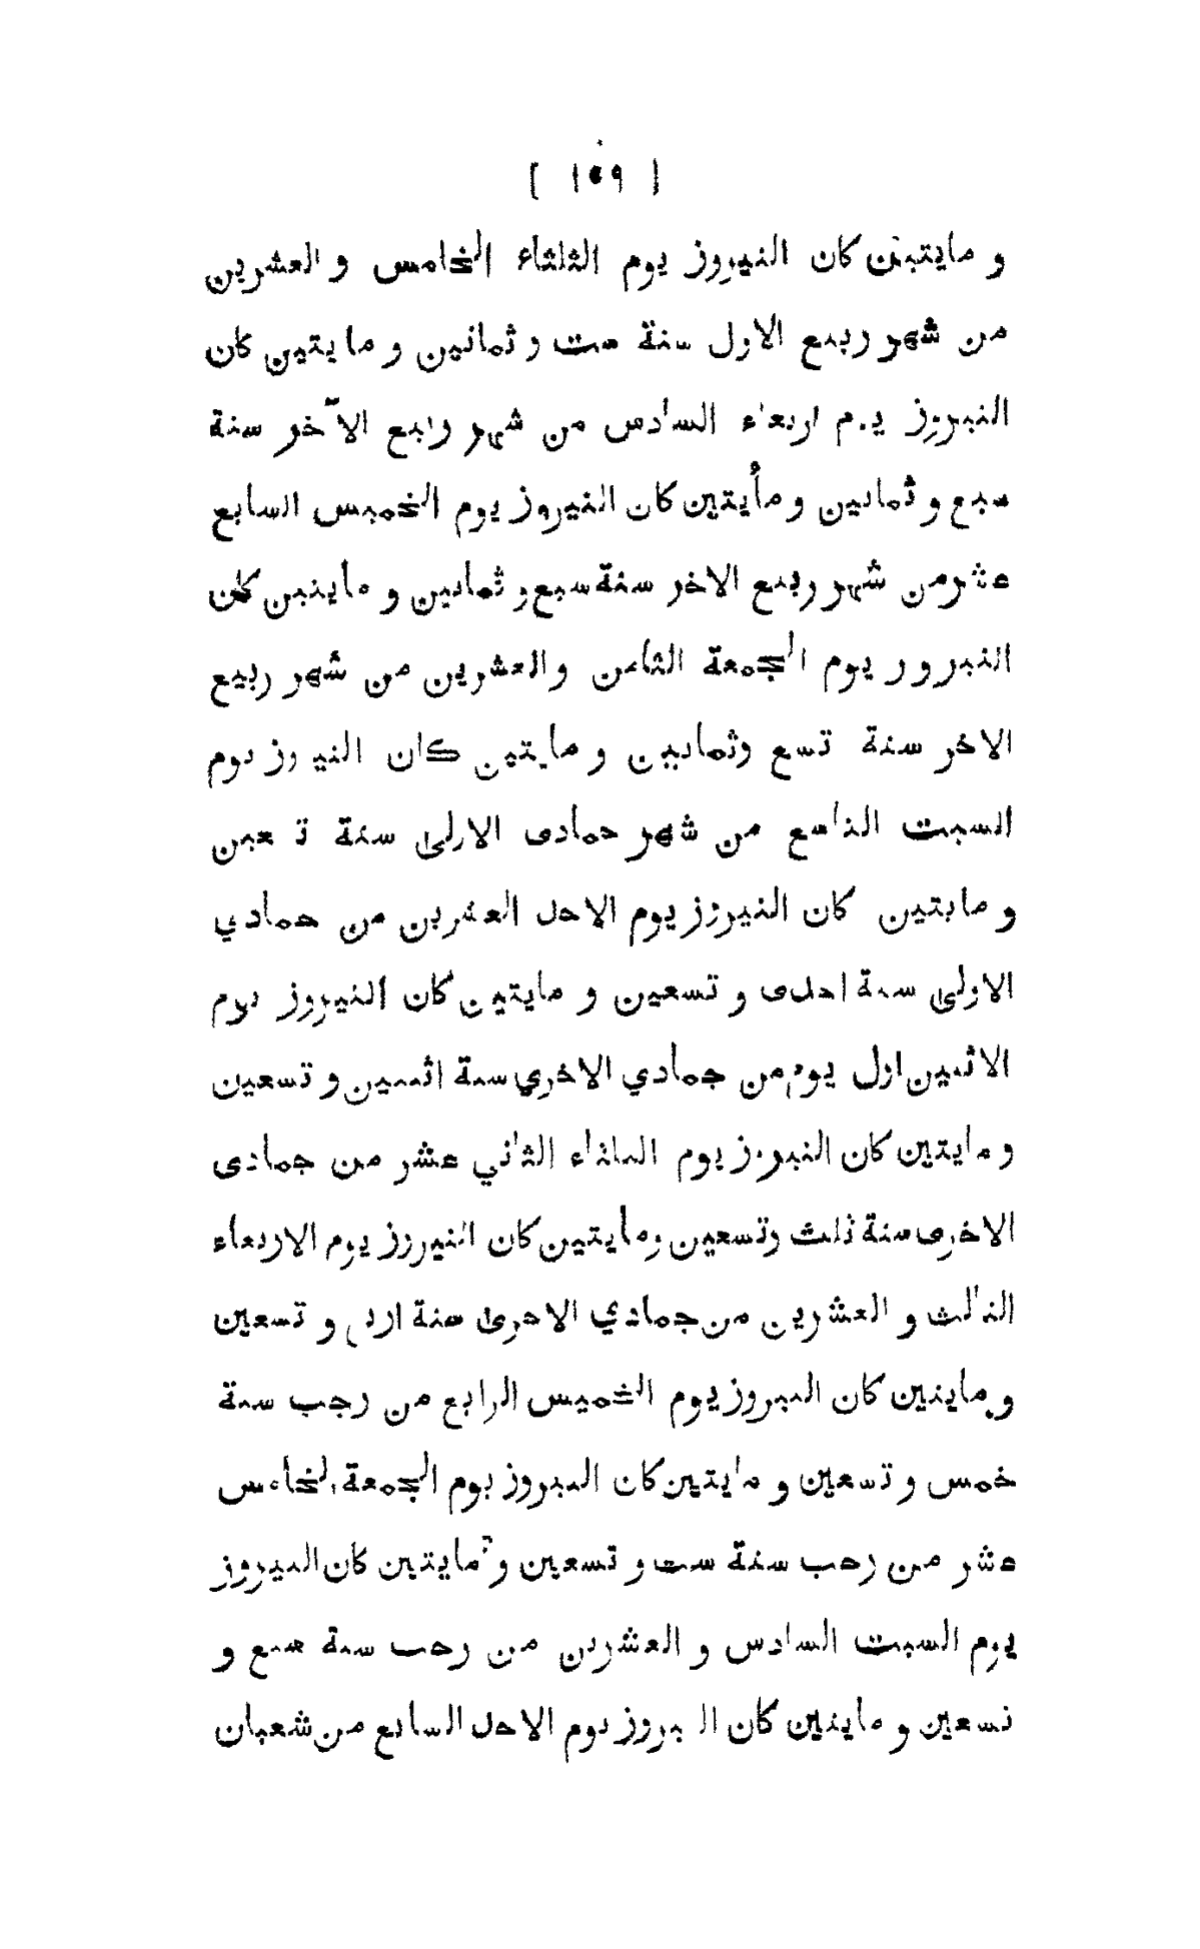 [ ١٥٩ ]
و مايتين كان النيروز يوم الثلثاء الخامس و العشرين
من شهر ربيع الاول سنة ست و ثمانين و مايتين كان
النيروز يوم اربعاء السادس من شهر ربيع الآخر سنة
سبع و ثمانين و مأيتين كان النيروز يوم الخميس السابع
عشر من شهر ربيع الاخر سنة سبع و ثمانين و ماينين كان
النيرور يوم الجمعة الثامن والعشرين من شهر ربيع
الاخر سنة تسع وثمانين و مايتين كان النيروز يوم
السبت التاسع من شهر جمادى الاولى سنة تسعين
و مايتين كان النيروز يوم الاحد العشرين من جمادي
الاولى سنة احدى و تسعين و مايتين كان النيروز يوم
الاثنين اول يوم من جمادي الاخري سنة اثنين و تسعين
و مايتين كان النيروز يوم الثلثاء الثاني عشر من جمادى
الاخرى سنة ثلث وتسعين ومايتين كان النيروز يوم الاربعاء
الثالث و العشرين من جمادي الاخرى سنة اربع و تسعين
و ماينين كان النيروز يوم الخميس الرابع من رجب سنة
خمس و تسعين و مايتين كان النيروز يوم الجمعة الخامس
عشر من رجب سنة ست و تسعين و مايتين كان النيروز
يوم السبت السادس و العشرين من رجب سنة سبع و
تسعين و ماينين كان النيروز يوم الاحد السابع من شعبان